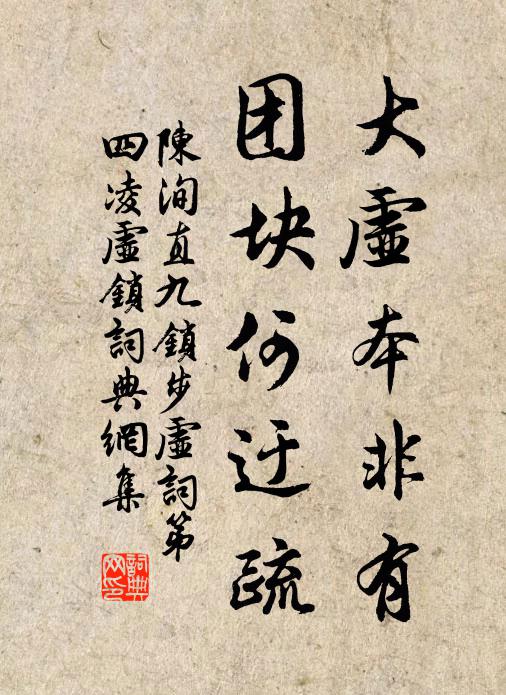 大虛本非有
团块何迂疏
陳洵直九鎖步虛詞第
四凌虛鎖詞典網集
詞典网印